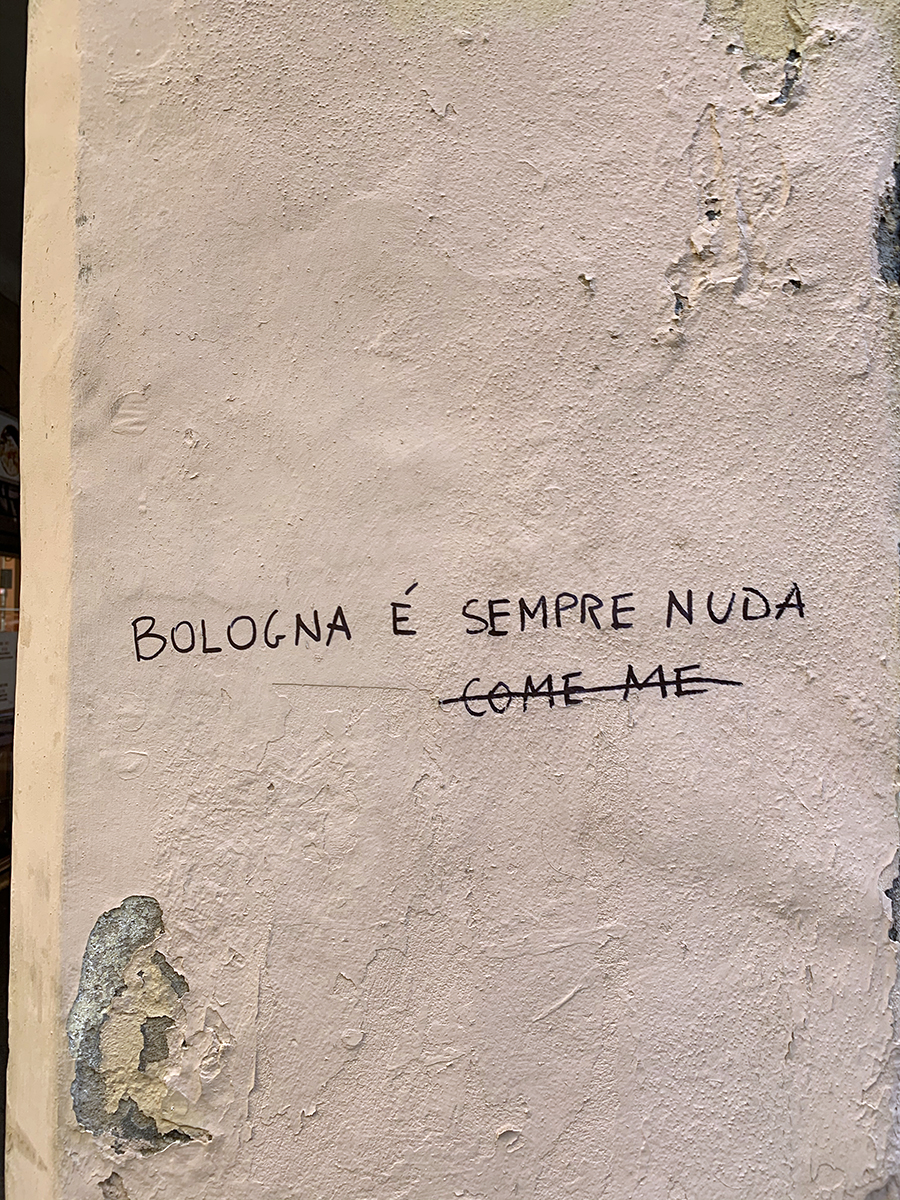 BOLOGNA É SEMPRE NUDA
COME ME